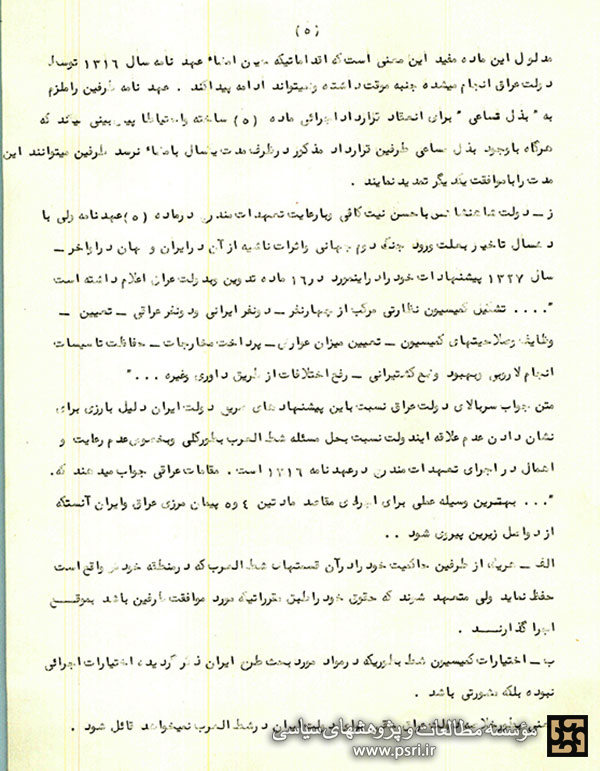 (۵)
مدلول این ماده مفید این معنی است که اقداماتیکه حین امضاء عهد نامه سال ۱۳۱۶ توسط
دولت عراق انجام میشده جنبه موقت داشته و نمیتواند ادامه پیدا کند . عهد نامه طرفین را ملزم
به " بذل مساعی " برای انعقاد قرارداد اجرائی ماده (۵) ساخته و احتیاطا پیش بینی میکند که
هرگاه با وجود بذل مساعی طرفین قرارداد مذکور در ظرف مدت یکسال بامضاء نرسد طرفین میتوانند این
مدت را با موافقت یکدیگر تمدید نمایند .
ز ـ دولت شاهنشاهی با حسن نیت کافی و با رعایت تعهدات مندرج در ماده (۵) عهدنامه ولی با
ده سال تاخیر بعلت ورود جنگ دوم جهانی و اثرات ناشیه از آن در ایران و جهان در اواخر ـ
سال ۱۳۲۷ پیشنهادات خود را در اینمورد در ۱۶ ماده تدوین و بدولت عراق اعلام داشته است
" .... تشکیل کمیسیون نظارتی مرکب از چهار نفر ـ دو نفر ایرانی و دو نفر عراقی ـ تعیین ـ
وظایف و صلاحیتهای کمیسیون ـ تعیین میزان عوارض ـ پرداخت مخارجات ـ حفاظت تاسیسات
انجام لاروبی و بهبود وضع کشتیرانی ـ رفع اختلافات از طریق داوری و غیره ... "
متن جواب سربالای دولت عراق نسبت باین پیشنهادهای صریح دولت ایران دلیل بارزی برای
نشان دادن عدم علاقه ایندولت نسبت بحل مسئله شط العرب بطور کلی و بخصوص عدم رعایت و
اهمال در اجرای تعهدات مندرج در عهدنامه ۱۳۱۶ است . مقامات عراقی جواب میدهند که.
" ... بهترین وسیله عملی برای اجرای مقاصد مادتین ۴ و ۵ پیمان مرزی عراق و ایران آنستکه
از دو اصل زیرین پیروی شود . .
الف ـ هریک از طرفین حاکمیت خود را در آن قسمتهای شط العرب که در منطقه خودش واقع است
حفظ نماید ولی متعهد شوند که حقوق خود را طبق مقرراتیکه مورد موافقت طرفین باشد بموقع
اجرا گذارند .
ب ـ اختیارات کمیسیون شط بطوریکه در مواد مورد بحث طرح ایران ذکر گردیده اختیارات اجرائی
نبوده بلکه مشورتی باشد .
دولت ایران در شط العرب نمیخواهد قائل شود .
موسسه مطالعات و پژوهشهای سیاسی
www.psri.ir